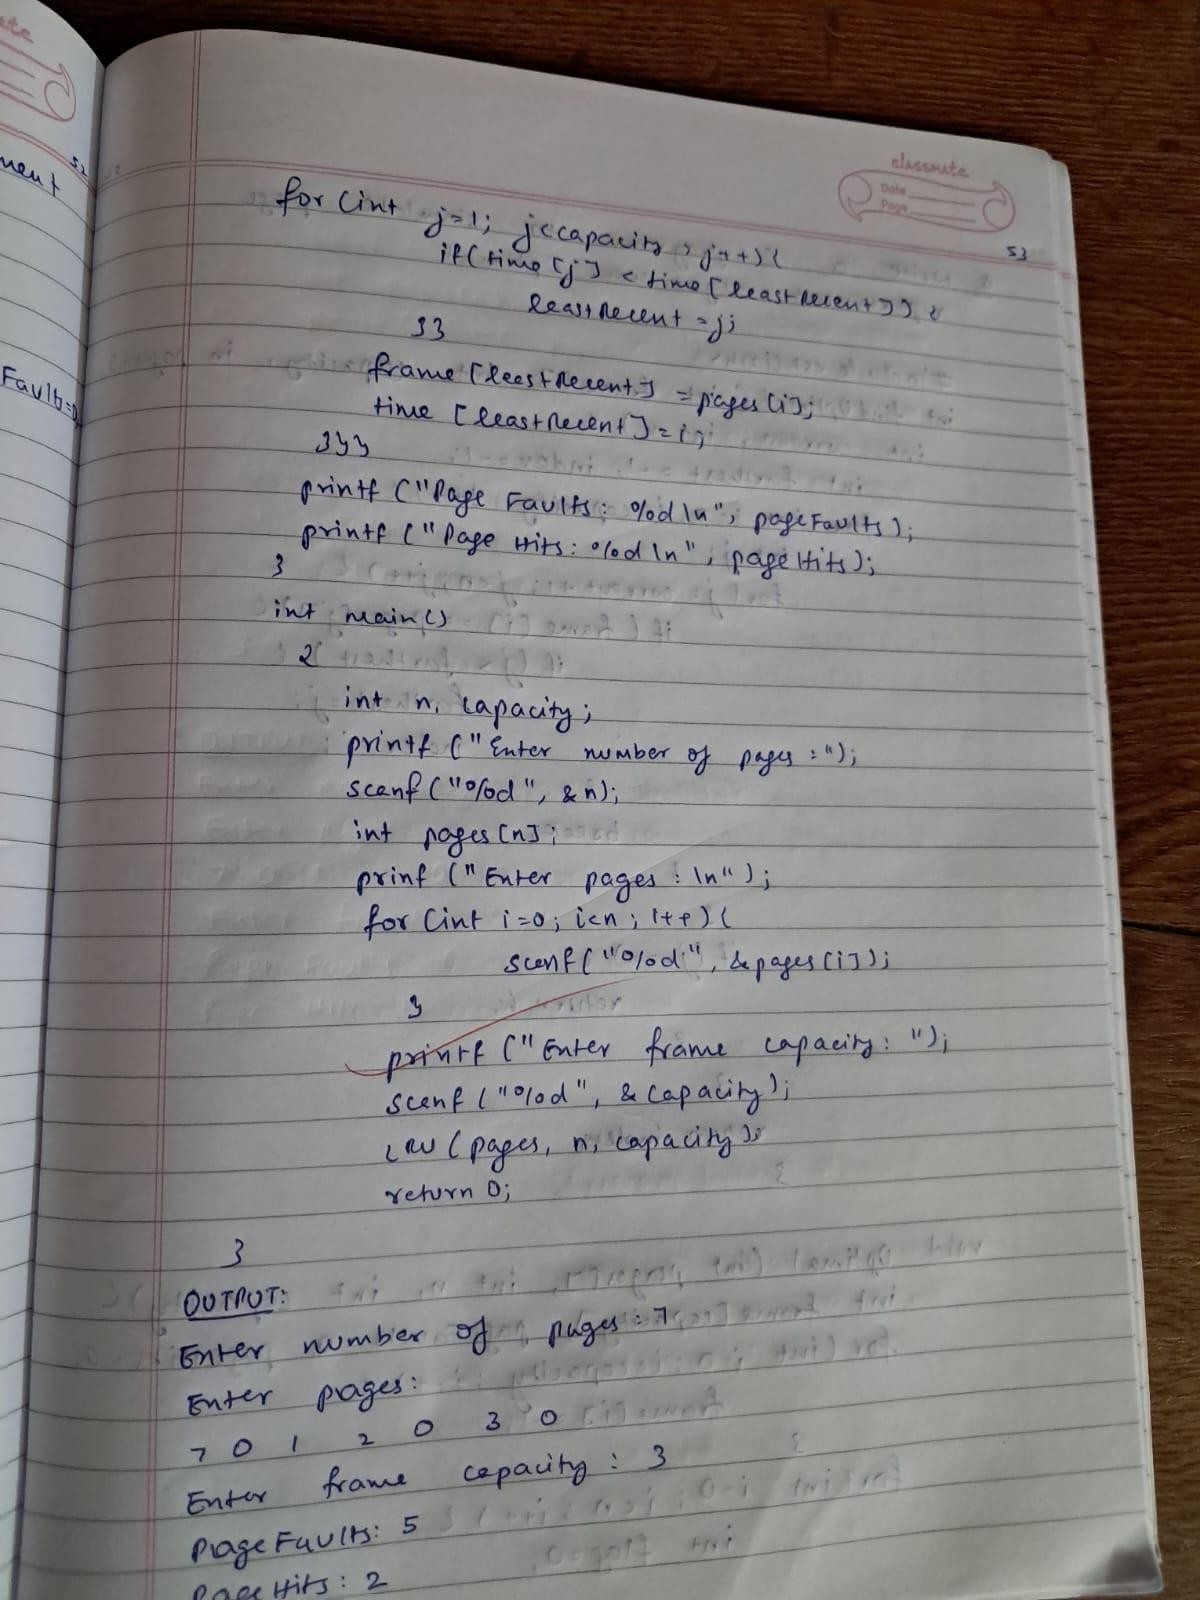 ment
52
Faults=0,
classmate
Date
Page
53
for (int j=1; j<capacity; j++){
if(time[j] < time[leastRecent]){
leastRecent = j;
}}
frame[leastRecent] = pages[i];
time [leastRecent] = i;
}}}
printf ("Page Faults: %d\n", pageFaults);
printf ("Page Hits: %d\n", pageHits);
}
int main()
{
int n, capacity;
printf ("Enter number of pages :");
scanf ("%d", &n);
int pages[n];
prinf ("Enter pages : \n");
for (int i=0; i<n; i++){
scanf("%d", &pages[i]);
}
printf ("Enter frame capacity: ");
scanf ("%d", &capacity);
LRU (pages, n, capacity);
return 0;
}
OUTPUT:
Enter number of pages : 7
Enter pages:
7 0 1 2 0 3 0
Enter frame capacity : 3
Page Faults: 5
Page Hits: 2